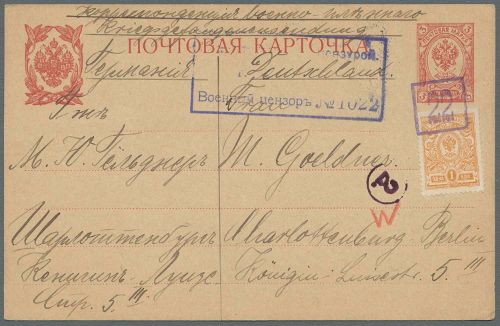 Корреспонденція военно плѣннаго
Kriegsgefangenensendung
ПОЧТОВАЯ КАРТОЧКА
Германія Deutschland
Военный цензоръ № 1022
М. Ю. Гельднеръ M. Goeldner
Шарлоттенбургъ Charlottenburg Berlin
Кенигинъ-Луизе Königin-Luisestr. 5 III
Стр. 5 III